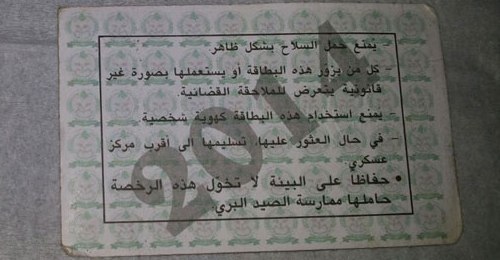 - يمنع حمل السلاح بشكل ظاهر
- كل من يزور هذه البطاقة أو يستعملها بصورة غير
قانونية يتعرض للملاحقة القضائية
- يمنع استخدام هذه البطاقة كهوية شخصية
- في حال العثور عليها، تسليمها الى أقرب مركز
عسكري
• حفاظا على البيئة لا تخوّل هذه الرخصة
حاملها ممارسة الصيد البري.
2014